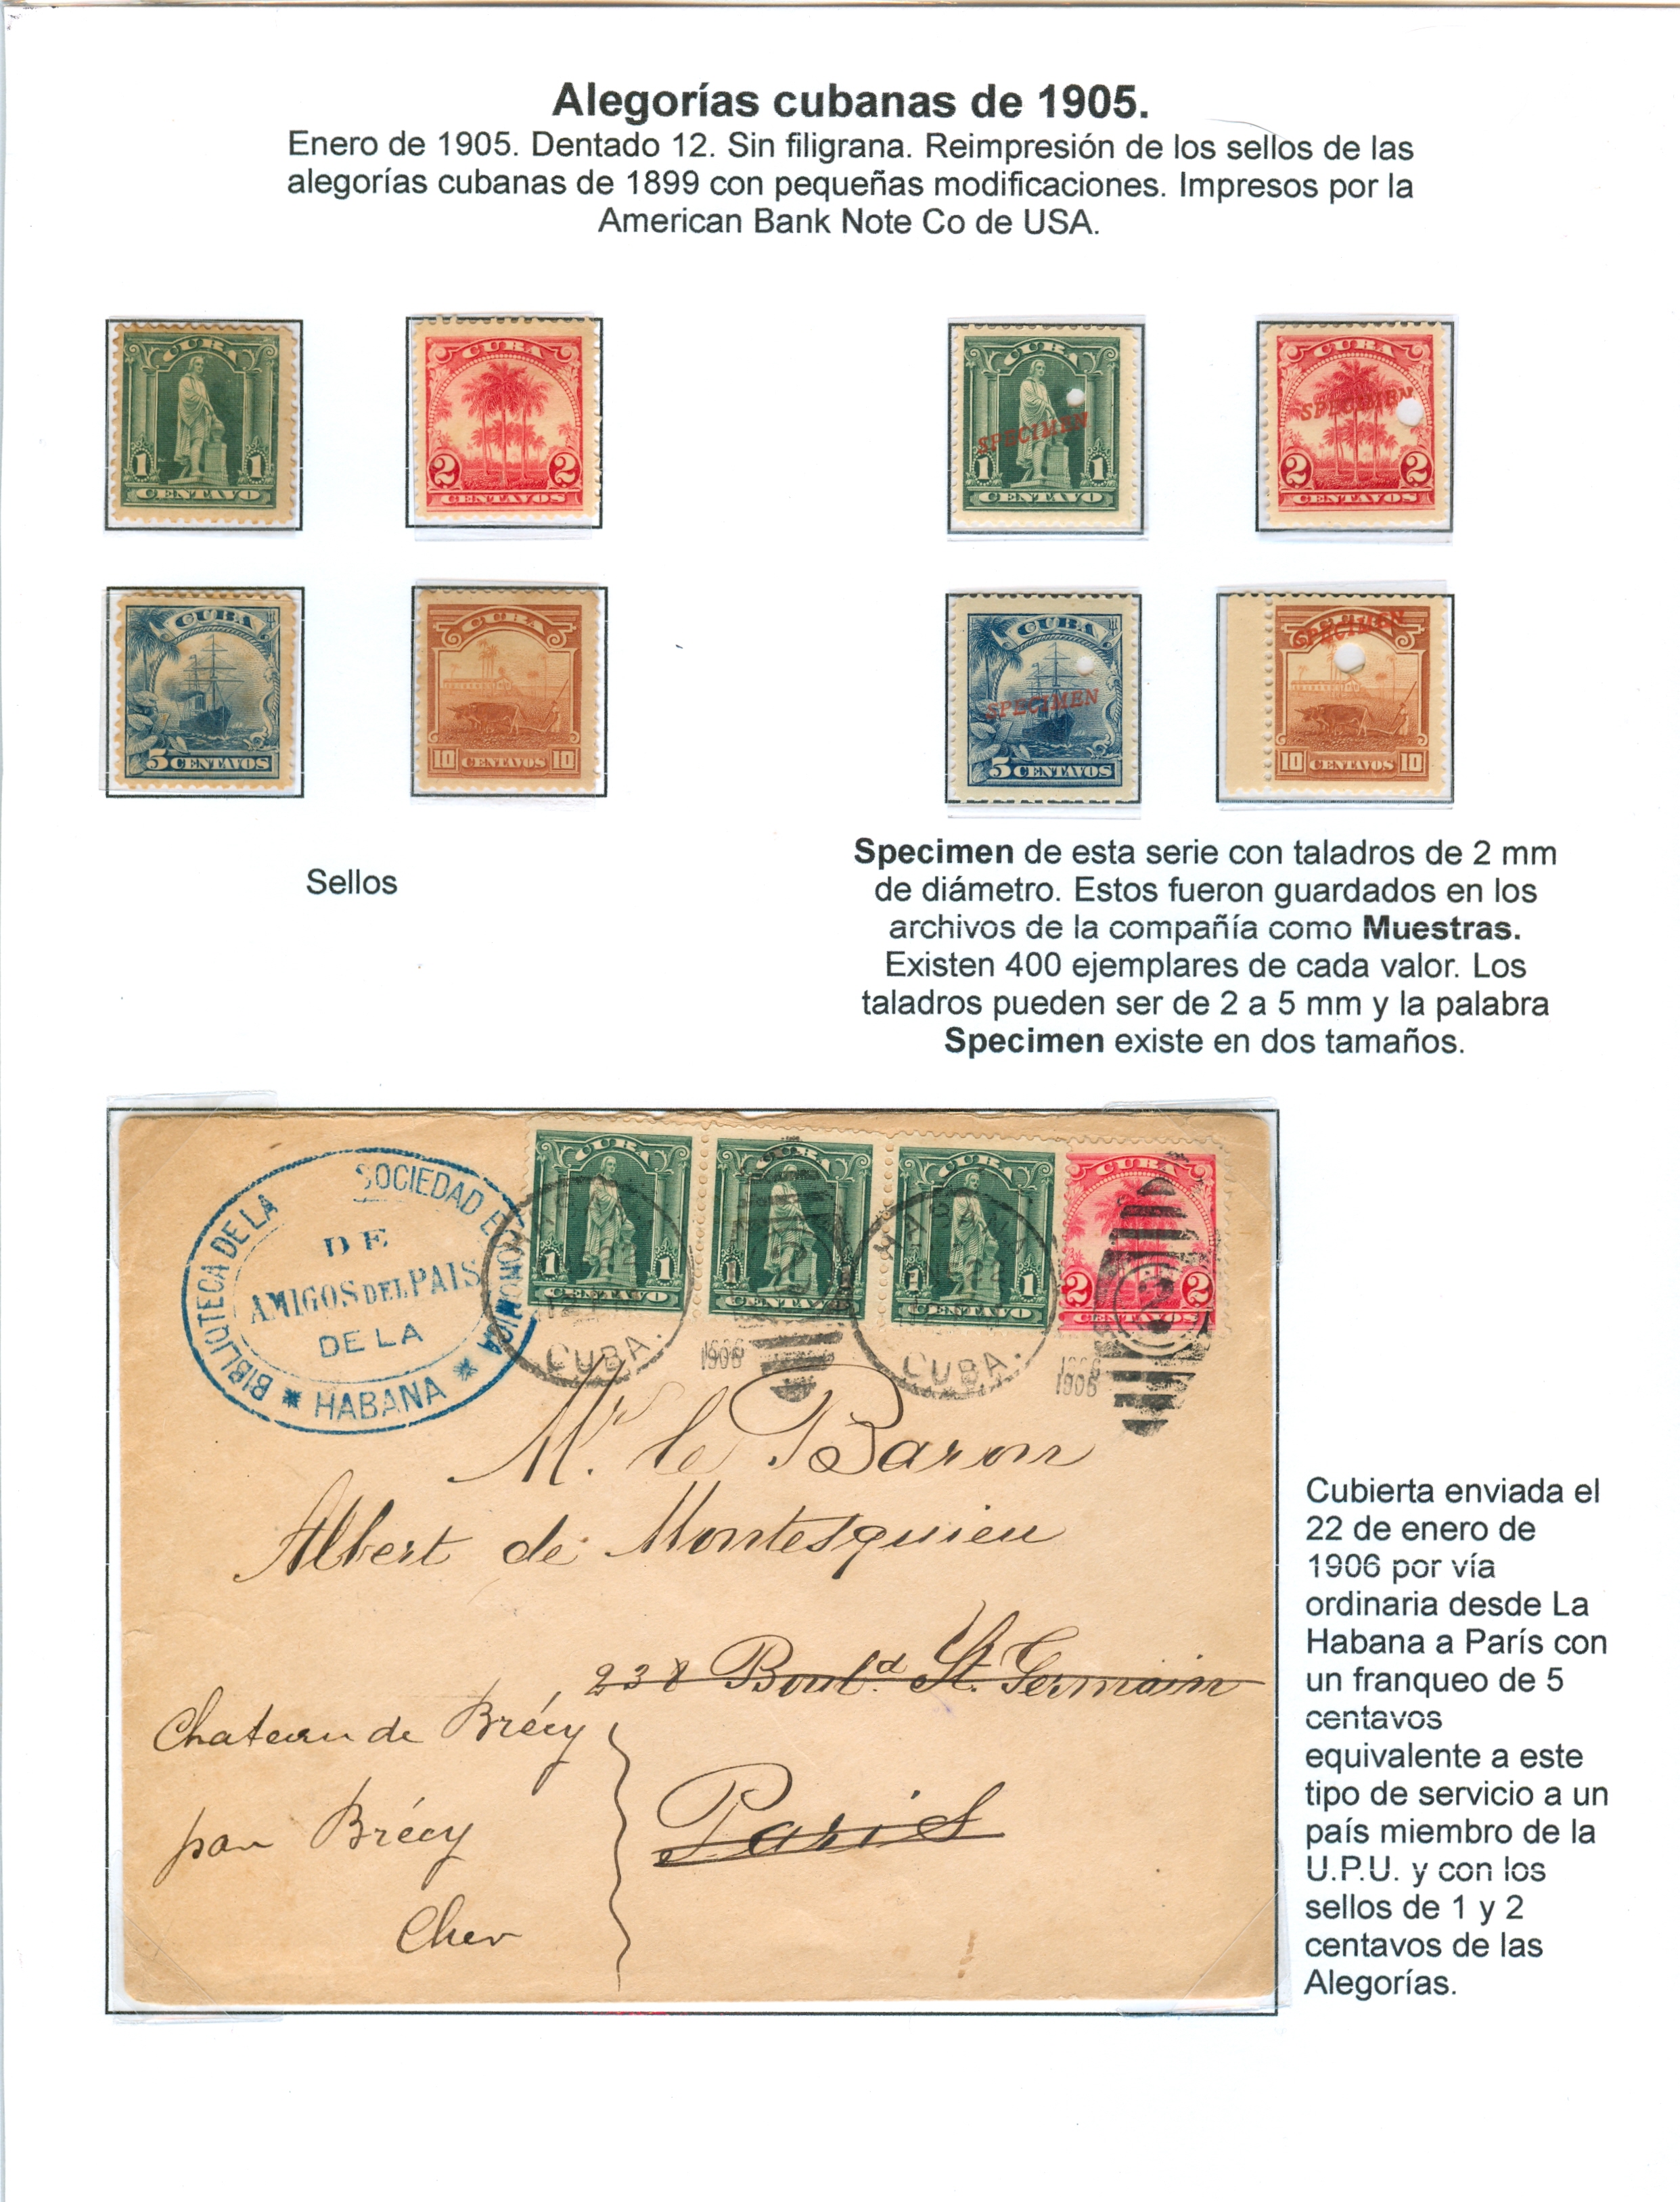 Alegorías cubanas de 1905.
Enero de 1905. Dentado 12. Sin filigrana. Reimpresión de los sellos de las
alegorías cubanas de 1899 con pequeñas modificaciones. Impresos por la
American Bank Note Co de USA.
CUBA
1 1
CENTAVO
CUBA
2 2
CENTAVOS
CUBA
SPECIMEN
1 1
CENTAVO
CUBA
SPECIMEN
2 2
CENTAVOS
CUBA
5 CENTAVOS
CUBA
10 CENTAVOS 10
CUBA
SPECIMEN
5 CENTAVOS
SPECIMEN
10 CENTAVOS 10
Sellos
Specimen de esta serie con taladros de 2 mm
de diámetro. Estos fueron guardados en los
archivos de la compañía como Muestras.
Existen 400 ejemplares de cada valor. Los
taladros pueden ser de 2 a 5 mm y la palabra
Specimen existe en dos tamaños.
BIBLIOTECA DE LA SOCIEDAD ECONOMICA
DE
AMIGOS DEL PAIS
DE LA
* HABANA *
CUBA
1 1
CENTAVO
CUBA
1 1
CENTAVO
CUBA
1 1
CENTAVO
CUBA
2 2
CENTAVOS
CUBA.
1906
2
HABANA
22
CUBA.
1906
2
Mr. le Baron
Albert de Montesquieu
238 Boul.d St. Germain
Paris
Chateau de Brécy
par Brécy
Cher
Cubierta enviada el
22 de enero de
1906 por vía
ordinaria desde La
Habana a París con
un franqueo de 5
centavos
equivalente a este
tipo de servicio a un
país miembro de la
U.P.U. y con los
sellos de 1 y 2
centavos de las
Alegorías.